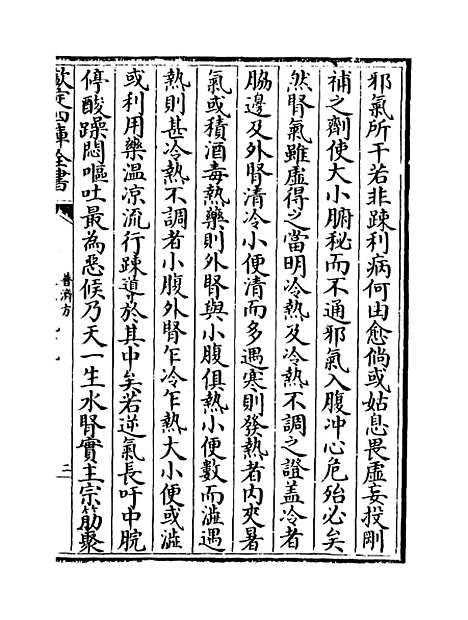 邪氣所干若非踈利病何由愈倘或姑息畏虛妄投剛
補之劑使大小腑秘而不通邪氣入腹冲心危殆必矣
然腎氣雖虛得之當明冷熱及冷熱不調之證盖冷者
脇邊及外腎清冷小便清而多遇寒則發熱者内夾暑
氣或積酒毒熱藥則外腎與小腹俱熱小便數而澁遇
熱則甚冷熱不調者小腹外腎乍冷乍熱大小便或澁
或利用藥温凉流行踈導於其中矣若逆氣長吁中脘
停酸躁悶嘔吐最為惡候乃天一生水腎實主宗筋聚
欽定四庫全書
普濟方
二